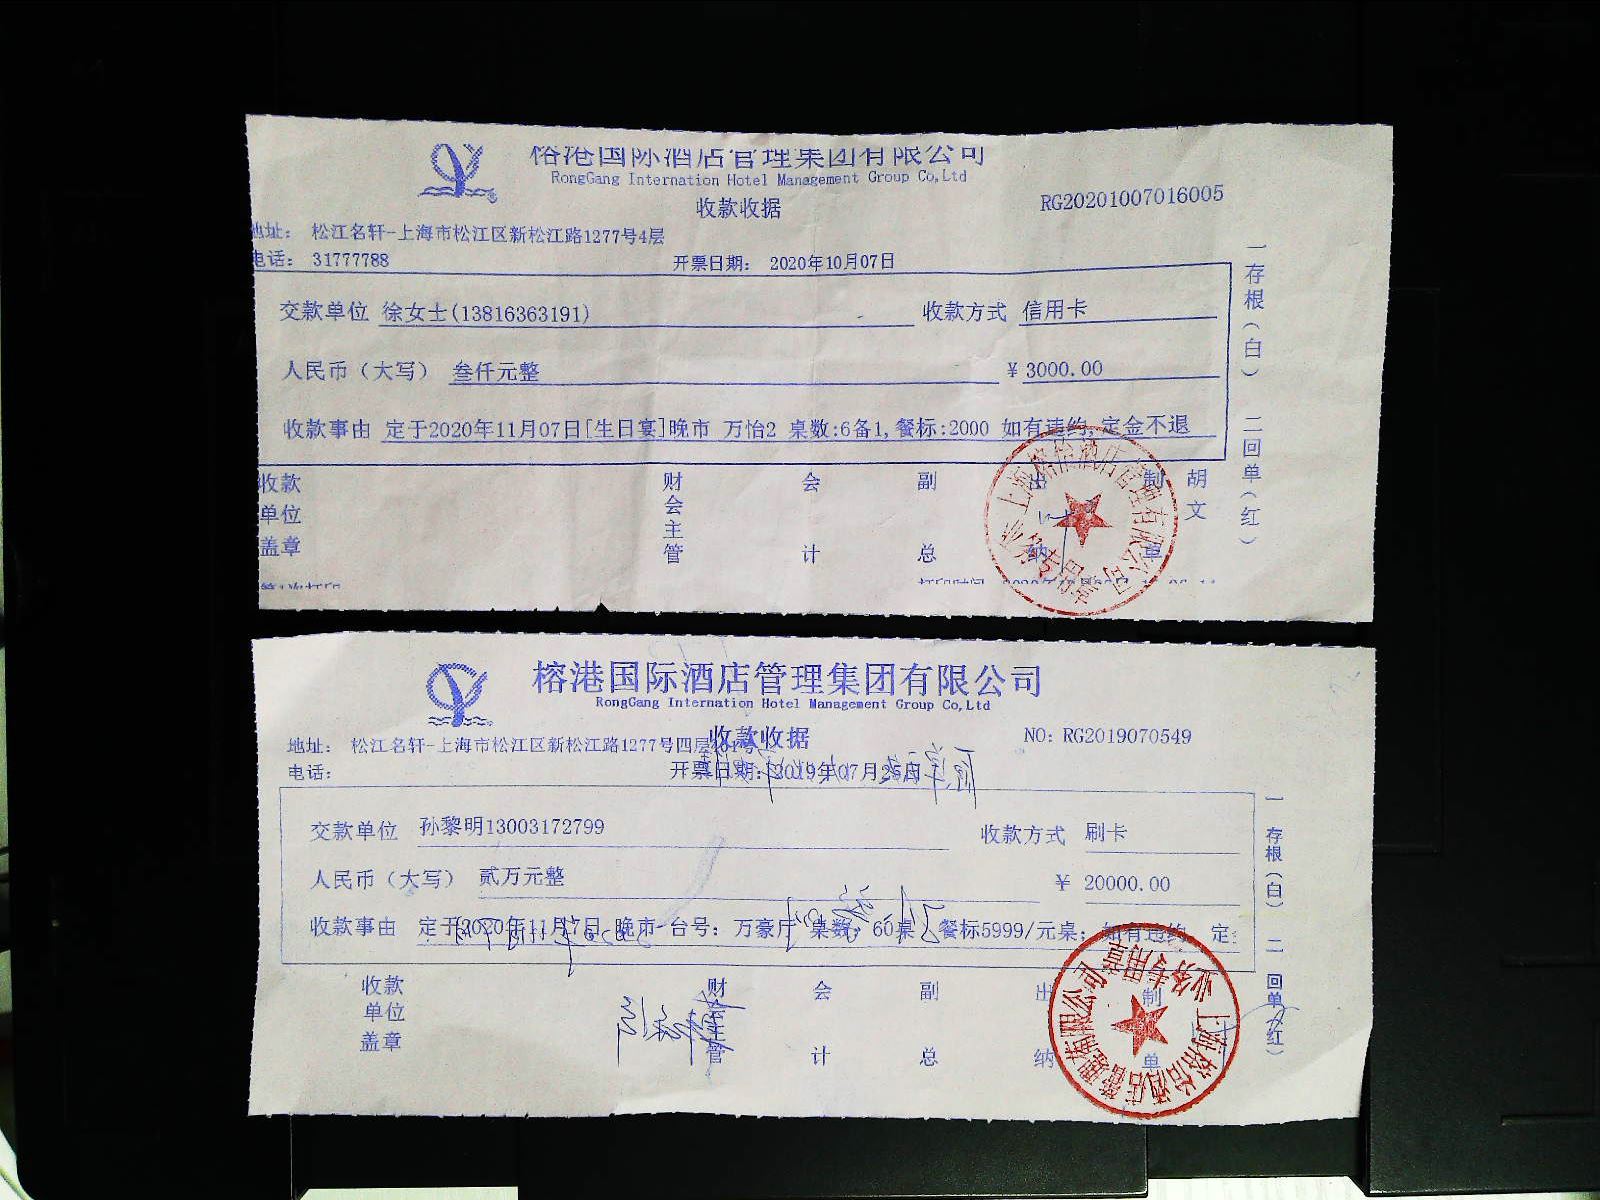 榕港国际酒店管理集团有限公司
RongGang Internation Hotel Management Group Co,Ltd
收款收据
RG20201007016005
地址： 松江名轩-上海市松江区新松江路1277号4层
电话： 31777788
开票日期： 2020年10月07日
交款单位 徐女士(13816363191)
收款方式 信用卡
人民币（大写） 叁仟元整
¥ 3000.00
收款事由 定于2020年11月07日[生日宴]晚市 万怡2 桌数:6备1,餐标:2000 如有违约,定金不退
收款单位盖章
财会主管
会计
副总
出纳
制单
胡文
一存根（白） 二回单（红）
上海榕怡酒店管理有限公司
业务专用章
榕港国际酒店管理集团有限公司
RongGang Internation Hotel Management Group Co,Ltd
收款收据
NO: RG2019070549
地址： 松江名轩-上海市松江区新松江路1277号四层
电话：
开票日期：2019年07月25日
交款单位 孙黎明13003172799
收款方式 刷卡
人民币（大写） 贰万元整
¥ 20000.00
收款事由 定于2020年11月7日 晚市 台号：万豪厅 桌数：60桌 餐标5999/元桌；如有违约 定
收款单位盖章
财会主管
会计
副总
出纳
制单
一存根（白） 二回单（红）
上海榕怡酒店管理有限公司
业务专用章